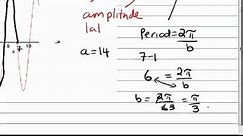 amplitude
|a|
a=14
Period = 2π/b
7-1
6 = 2π/b
b = 2π/63 = π/3
7
10